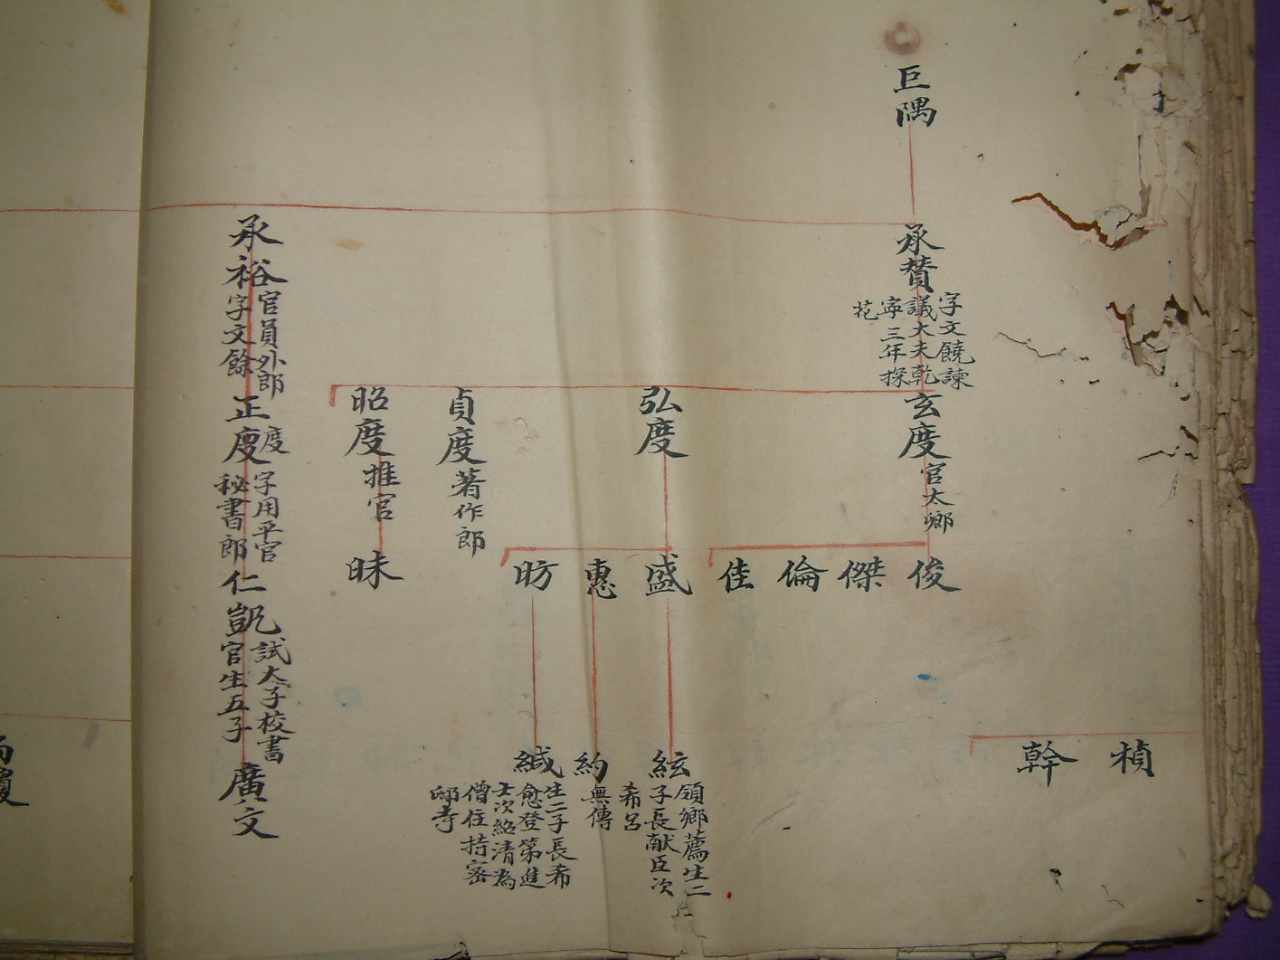 巨隅
承贊
字文饒諫
議大夫乾
寧三年探
花
玄度
官太鄉
俊
傑
倫
佳
弘度
盛
惠
昉
貞度
著作郎
昭度
推官
昧
楨
幹
絃
領鄉薦生二
子長献臣次
希呂
約
無傳
緘
生二子長希
愈登第進
士次紹清為
僧住持密
邸寺
承裕
官員外郎
字文餘
正度
度
字用平官
秘書郎
仁凱
試太子校書
官生五子
廣文